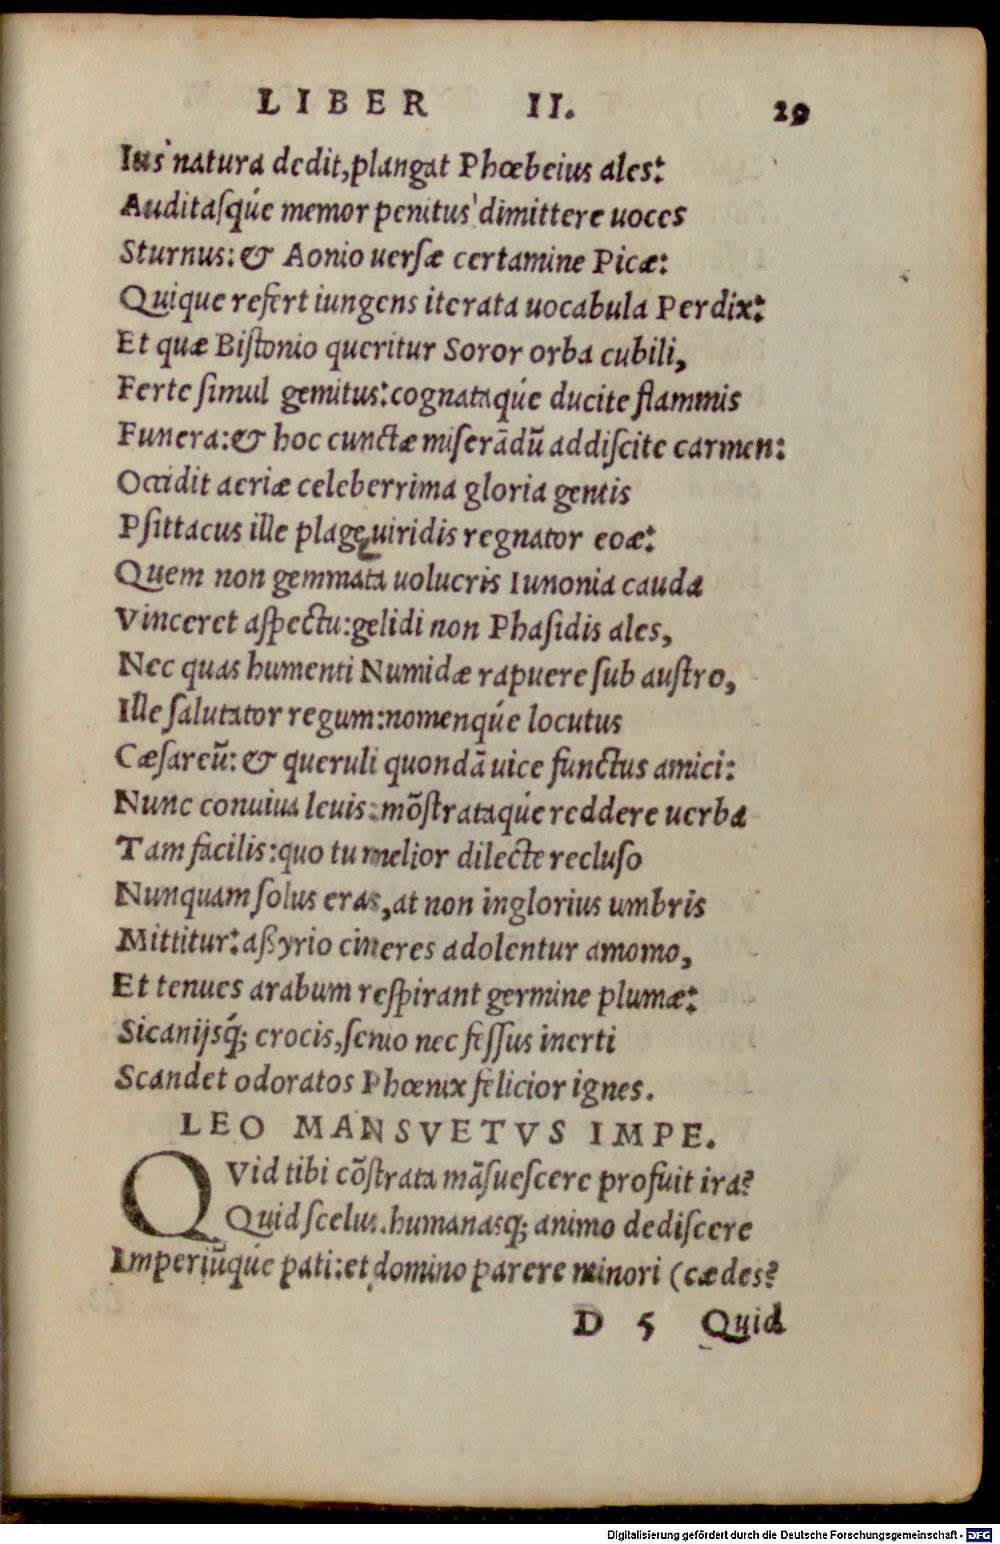 LIBER II. 29
Ius natura dedit, plangat Phœbeius ales:
Auditasqúe memor penitus dimittere uoces
Sturnus: & Aonio uersæ certamine Picæ:
Quique refert iungens iterata uocabula Perdix:
Et quæ Bistonio queritur Soror orba cubili,
Ferte simul gemitus: cognataqúe ducite flammis
Funera: & hoc cunctæ miserādū addiscite carmen:
Occidit aeriæ celeberrima gloria gentis
Psittacus ille plagę uiridis regnator eoæ:
Quem non gemmata uolucris Iunonia cauda
Vinceret aspectu: gelidi non Phasidis ales,
Nec quas humenti Numidæ rapuere sub austro,
Ille salutator regum: nomenqúe locutus
Cæsareū: & queruli quondā uice functus amici:
Nunc conuiua leuis: mōstrataqúe reddere uerba
Tam facilis: quo tu melior dilecte recluso
Nunquam solus eras, at non inglorius umbris
Mittitur: aßyrio cineres adolentur amomo,
Et tenues arabum respirant germine plumæ:
Sicanijsq́; crocis, senio nec fessus inerti
Scandet odoratos Phœnix felicior ignes.
LEO MANSVETVS IMPE.
QVid tibi cōstrata māsuescere profuit ira?
Quid scelus. humanasq; animo dediscere
Imperiūqúe pati: et domino parere minori (cædes?
D 5 Quid
Digitalisierung gefördert durch die Deutsche Forschungsgemeinschaft - DFG